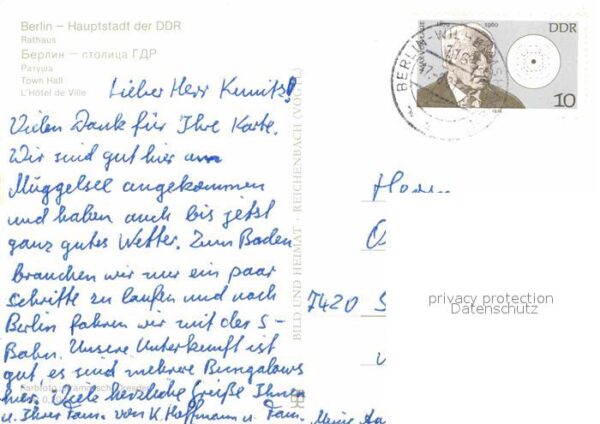 Berlin – Hauptstadt der DDR
Rathaus
Берлин – столица ГДР
Ратуша
Town Hall
L'Hôtel de Ville
Lieber Herr Kunitz!
Vielen Dank für Ihre Karte.
Wir sind gut hier am
Müggelsee angekommen
und haben auch bis jetzt
ganz gutes Wetter. Zum Baden
brauchen wir nur ein paar
Schritte zu laufen und nach
Berlin fahren wir mit der S-
Bahn. Unsere Unterkunft ist
gut, es sind mehrere Bungalows
hier. Viele herzliche Grüße Ihnen
u. Ihrer Fam. von K. Hoffmann u. Fam.
BILD UND HEIMAT · REICHENBACH (VOGTL)
DDR
10
7420 S
privacy protection
Datenschutz